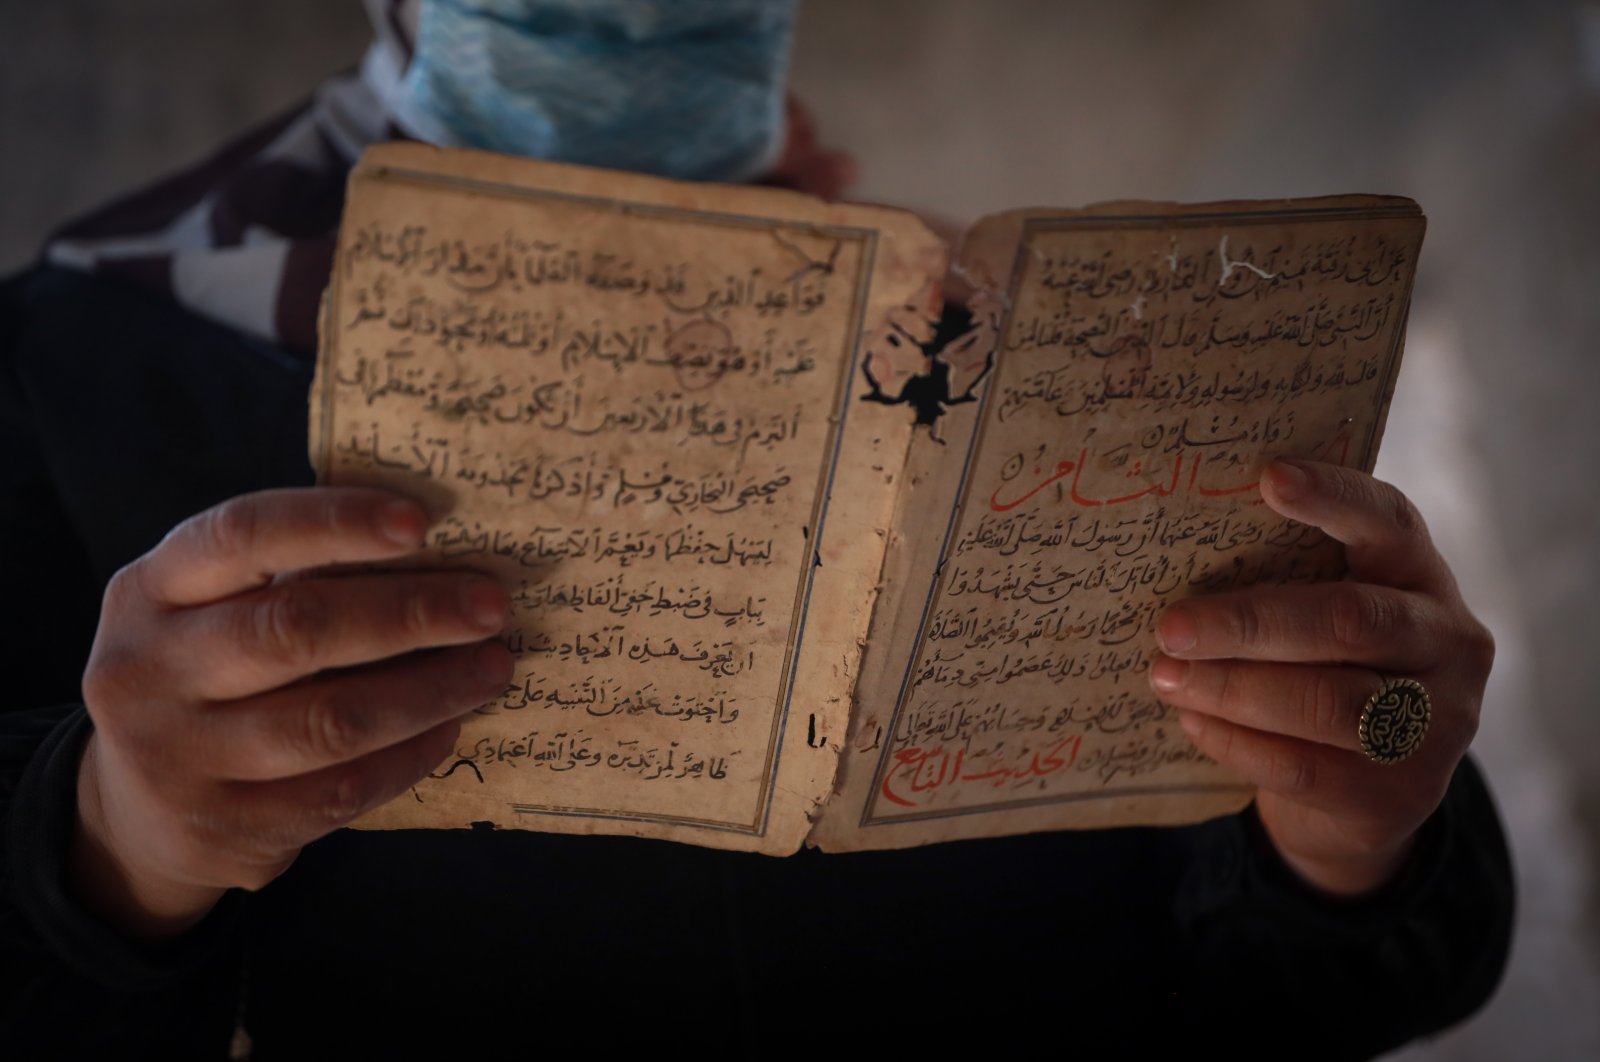 عن أبي رقية تميم بن أوس الداري رضي الله عنه
أن النبي صلى الله عليه وسلم قال الدين النصيحة قلنا لمن
قال لله ولكتابه ولرسوله ولأئمة المسلمين وعامتهم
رواه مسلم
الحديث الثامن
عمر رضي الله عنهما أن رسول الله صلى الله عليه
وسلم قال أمرت أن أقاتل الناس حتى يشهدوا
وأن محمدا رسول الله ويقيموا الصلاة
فعلوا ذلك عصموا مني دماءهم
وحسابهم على الله تعالى
الحديث التاسع
قواعد الدين قد وصفه العلماء بأن مدار الإسلام
عليه أو هو نصف الإسلام أو ثلثه أو نحو ذلك ثم
ألتزم في هذه الأربعين أن تكون صحيحة ومعظمها في
صحيحي البخاري ومسلم وأذكرها محذوفة الأسانيد
ليسهل حفظها ويعم الانتفاع بها
بباب في ضبط خفي ألفاظها
أن يعرف هذه الأحاديث لما
واحتوت عليه من التنبيه على
ظاهر لمن تدبره وعلى الله اعتمادي